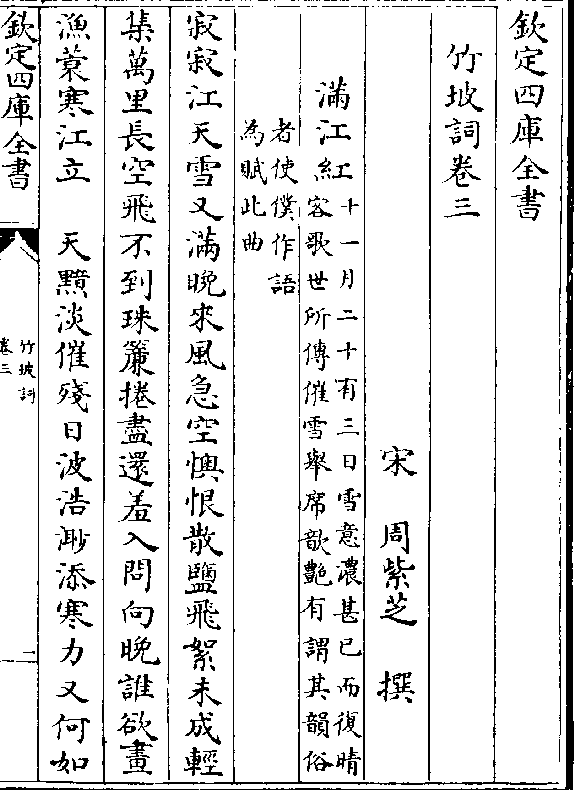 欽定四庫全書
竹坡詞卷三
宋 周紫芝 撰
滿江紅十一月二十有三日雪意濃甚已而復晴
客歌世所傳催雪舉席歆艶有謂其韻俗
者使僕作語
為賦此曲
寂寂江天雪又滿晚來風急空懊恨散鹽飛絮未成輕
集萬里長空飛不到珠簾捲盡還羞入問向晚誰欲畫
漁蓑寒江立 天黯淡催殘日波浩渺添寒力又何如
欽定四庫全書
竹坡詞
卷三
二